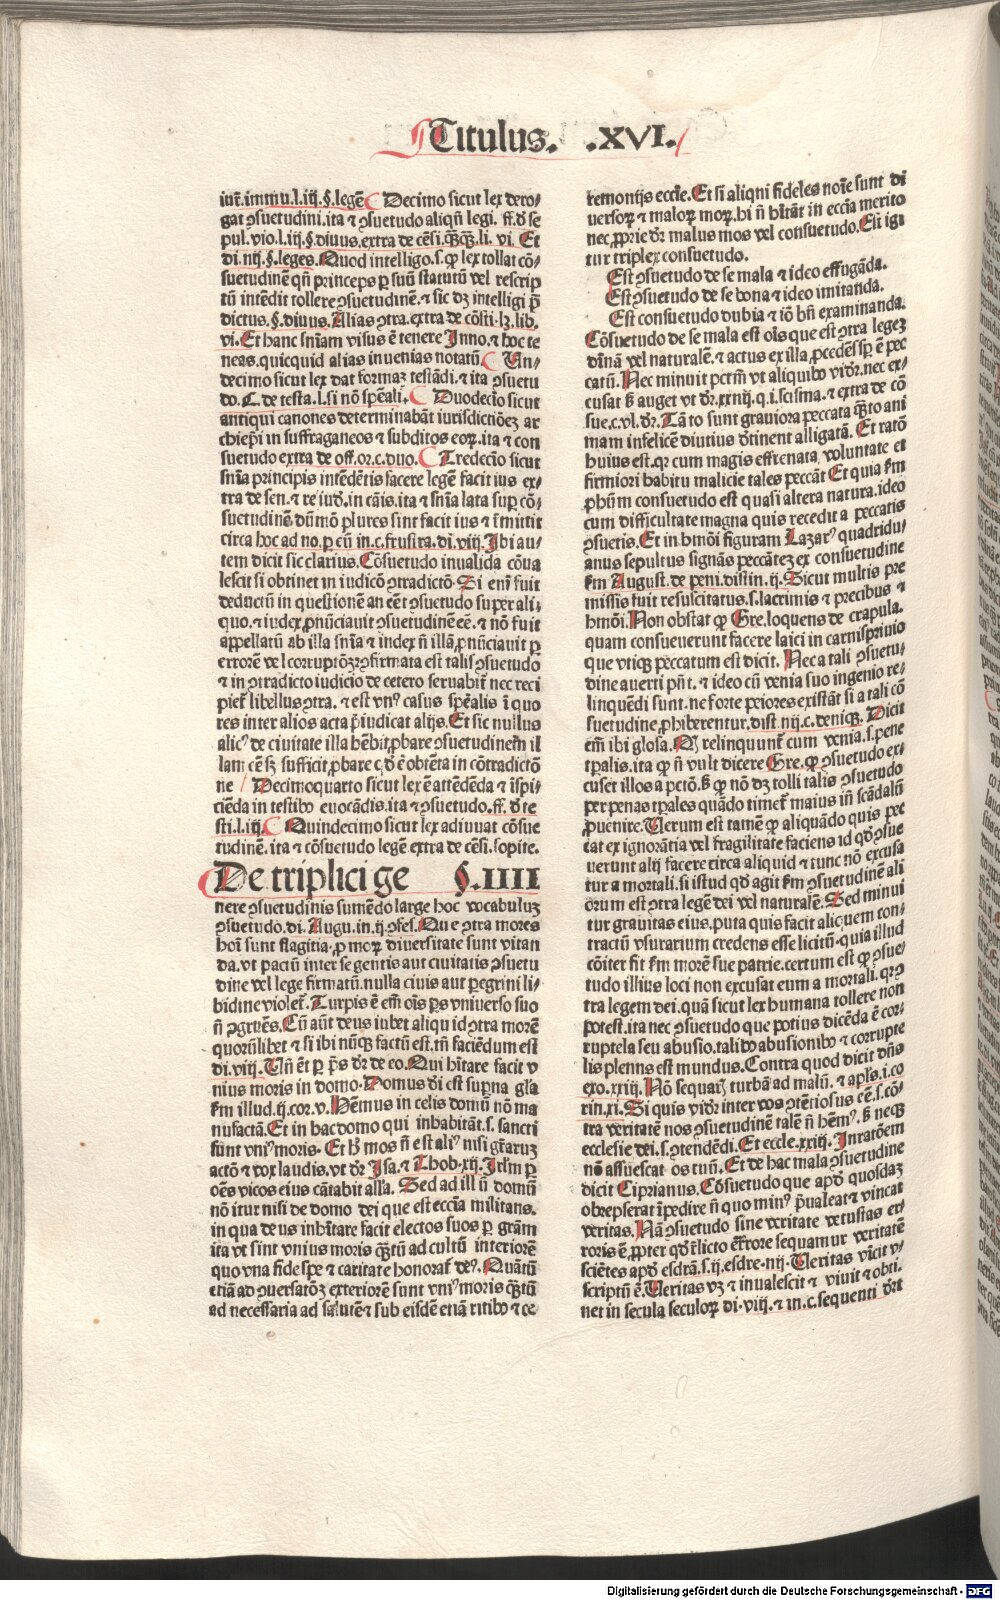 Titulus. .XVI.
iur̃.immu.l.iij.§.legẽ Decimo sicut lex dero-
gat ꝯsuetudini.ita ⁊ ꝯsuetudo aliqñ legi. ff.ð se
pul.vio.l.iij.§.diuus.extra de cẽsi.q̃q̃.li. vi. Et
di.iiij.§.leges.Quod intelligo.s.ꝙ lex tollat cõ-
suetudinẽ qñ princeps ꝑ suũ statutũ vel rescrip
tũ intẽdit tollere ꝯsuetudinẽ.⁊ sic dꝫ intelligi p̃
dictus.§.diuus.Alias ꝯtra.extra de cõsti.lꝫ.lib.
vi.Et hanc sniam visus ẽ tenere Inno.⁊ hoc te
neas.quicquid alias inuenias notatũ. Un-
decimo sicut lex dat formaꝫ testãdi.⁊ ita ꝯsuetu
do.C.de testa.l.si nõ sp̃eali. Duodecĩo sicut
antiqui canones determinabãt iurisdictiõeꝫ ar
chiep̃i in suffraganeos ⁊ subditos eoꝝ.ita ⁊ con
suetudo extra de off.or.c.duo. Tredecĩo sicut
snĩa principis intẽdẽtis facere legẽ facit ius ex-
tra de sen.⁊ re iud.in cãis.ita ⁊ snĩa lata suꝑ cõ-
suetudinẽ.dũmõ plures sint facit ius ⁊ ĩmittit
circa hoc ad no.ꝑ cũ in.c.frustra.di.viij.Ibi au-
tem dicit sic clarius.Cõsuetudo inualida cõua
lescit si obtinet in iudicõ ꝯtradictõ.Si enĩ fuit
deductũ in questionẽ an eẽt ꝯsuetudo super ali-
quo.⁊ iudex ꝓnũciauit ꝯsuetudinẽ eẽ.⁊ nõ fuit
appellatũ ab illa snĩa ⁊ iudex ñ illã ꝓnũciauit ꝑ
errorẽ vel corruptõꝫ ꝯfirmata est talis ꝯsuetudo
⁊ in ꝯtradicto iudicio de cetero seruabit̃ nec reci
piet̃ libellus ꝯtra.⁊ est vnꝰ casus sp̃ealis ĩ quo
res inter alios acta p̃iudicat alijs.Et sic nullus
alicꝰ de ciuitate illa hẽbit ꝓbare ꝯsuetudinem il
lam eẽ sꝫ sufficit ꝓbare ꝙ ð ẽ obtẽta in cõtradictõ
ne Decimoquarto sicut lex ẽ attẽdẽda ⁊ ĩspi-
ciẽda in testibꝰ euocãdis.ita ⁊ ꝯsuetudo.ff. ð te
sti.l.iij. Quindecimo sicut lex adiuuat cõsue
tudinẽ.ita ⁊ cõsuetudo legẽ extra de cẽsi.sopite.
De triplici ge §.IIII
nere ꝯsuetudinis sumẽdo large hoc vocabuluꝫ
ꝯsuetudo.di.Augu.in.ij.ꝯfes.Que ꝯtra mores
hoĩ sunt flagitia.ꝓ moꝝ diuersitate sunt vitan
da.vt pactũ inter se gentis aut ciuitatis ꝯsuetu
dine vel lege firmatũ.nulla ciuis aut ꝑegrini li-
bidine violet̃.Turpis ẽ em̃ oĩs ꝑs vniuerso suo
ñ ꝯgruẽs.Cũ aũt deus iubet aliquid ꝯtra morẽ
quorũlibet ⁊ si ibi nũqꝫ factũ est.tñ faciẽdum est
di.viij. Uñ ẽt ꝑ p̃s dr̃ de eo.Qui hĩtare facit v
nius moris in domo.Domus ði est suꝑna gl̃a
ẽm illud.ij.cor.v.Hẽmus in celis domũ nõ ma
nufactã.Et in hac domo qui inhabitãt.s. sancti
sunt vniꝰ moris. Et hꝰ mos ñ est aliꝰ nisi gr̃aruꝫ
actõ ⁊ vox laudis.vt dr̃ Isa.⁊ Thob.xij.Irl̃m ꝑ
oẽs vicos eius cãtabit all̃a. Sed ad illũ domũ
nõ itur nisi de domo dei que est ecc̃ia militans.
in qua deus inhĩtare facit electos suos ꝑ grãm
ita vt sint vnius moris q̃tũ ad cultũ interiorẽ
quo vna fide spe ⁊ caritate honorat̃ deꝰ.Quãtũ
etiã ad ꝯuersatõꝫ exteriorẽ sunt vniꝰ moris q̃tũ
ad necessaria ad salutẽ ⁊ sub eisdẽ etiã ritibꝰ ⁊ ce
remonijs eccl̃e.Et si aliqui fideles noĩe sunt di
uersoꝝ ⁊ maloꝝ moꝝ.hi ñ hĩtãt in ecc̃ia merito
nec ꝓprie dr̃ malus mos vel consuetudo.Est igi
tur triplex consuetudo.
Est ꝯsuetudo de se mala ⁊ ideo effugãda.
Est ꝯsuetudo de se bona ⁊ ideo imitanda.
Est consuetudo dubia ⁊ iõ bñ examinanda.
Cõsuetudo de se mala est oĩs que est ꝯtra legeꝫ
diuinã vel naturalẽ.⁊ actus ex illa ꝓcedẽs sp̃ ẽ pec
catũ.Nec minuit pctm̃ vt aliquibꝰ vidr̃.nec ex-
cusat ß auget vt dr̃.xxiiij.q.i.scisma.⁊ extra de cõ
sue.c.vl.dr̃.Tãto sunt grauiora peccata q̃to ani
mam infelicẽ diutius ðtinent alligatã. Et ratõ
huius est.qꝛ cum magis effrenata voluntate et
firmiori habitu malicie tales peccãt Et quia ẽm
ꝓhũm consuetudo est quasi altera natura.ideo
cum difficultate magna quis recedit a peccatis
ꝯsuetis.Et in hmõi figuram Lazarꝰ quadridu-
anus sepultus signãs peccãteꝫ ex consuetudine
ẽm August.de peni.distin.ij.Sicut multis pre
missis fuit resuscitatus.s.lacrimis ⁊ precibus ⁊
hmõi.Non obstat ꝙ Gre.loquens de crapula.
quam consueuerunt facere laici in carnispriuio
que vtiqꝫ peccatum est dicit. Nec a tali ꝯsuetu-
dine auerti pñt.⁊ ideo cũ venia suo ingenio re-
linquẽdi sunt.ne forte peiores existãt si a tali cõ
suetudine ꝓhiberentur.dist.iiij.c.deniqꝫ. Dicit
em̃ ibi glosa. relinquunt̃ cum venia.s.pene
tp̃alis.ita ꝙ ñ vult dicere Gre.ꝙ ꝯsuetudo ex-
cuset illos a pctõ.ß ꝙ nõ dꝫ tolli talis ꝯsuetudo
per penas tp̃ales quãdo timet̃ maius iñ scãdalũ
ꝓuenire.Uerum est tamẽ ꝙ aliquãdo quis pec
cat ex ignorãtia vel fragilitate faciens id qð ꝯsue
uerunt alij facere circa aliquid ⁊ tunc nõ excusa
tur a mortali.si istud qð agit ẽm ꝯsuetudinẽ ali
orum est ꝯtra legẽ dei vel naturalẽ.Sed minui
tur grauitas eius.puta quis facit aliquem con-
tractũ vsurarium credens esse licitũ.quia illud
cõiter fit ẽm morẽ sue patrie.certum est ꝙ ꝯsue-
tudo illius loci non excusat eum a mortali.qꝛ ꝯ
tra legem dei.quã sicut lex humana tollere non
potest.ita nec ꝯsuetudo que potius dicẽda ẽ cor
ruptela seu abusio.talibꝰ abusionibꝰ ⁊ corrupte
lis plenus est mundus.Contra quod dicit dñs
exo.xxiij.Nõ sequaris turbã ad malũ.⁊ apl̃s.i.co
rin.xi.Si quis vidr̃ inter vos ꝯtẽtiosus eẽ.s.cõ-
tra veritatẽ nos ꝯsuetudinẽ talẽ ñ hẽmꝰ.ß neqꝫ
ecclesie dei.s.ꝯtendẽdi.Et eccle.xxiij. Inratõem
nõ assuescat os tuũ. Et de hac mala ꝯsuetudine
dicit Ciprianus.Cõsuetudo que apð quosdaꝫ
obrepserat ĩpedire ñ quo minꝰ p̃ualeat ⁊ vincat
veritas. Nã ꝯsuetudo sine veritate vetustas er
roris ẽ.ꝓpter qð r̃licto errore sequamur veritatẽ
sciẽtes apð esdrã.s.ij.esdre.iiij.Ueritas vĩcit v-
scriptũ ẽ.Ueritas vꝫ ⁊ inualescit ⁊ viuit ⁊ obti.
net in secula seculoꝝ di.viij.⁊ in.c.sequenti dr̃
Digitalisierung gefördert durch die Deutsche Forschungsgemeinschaft - DFG